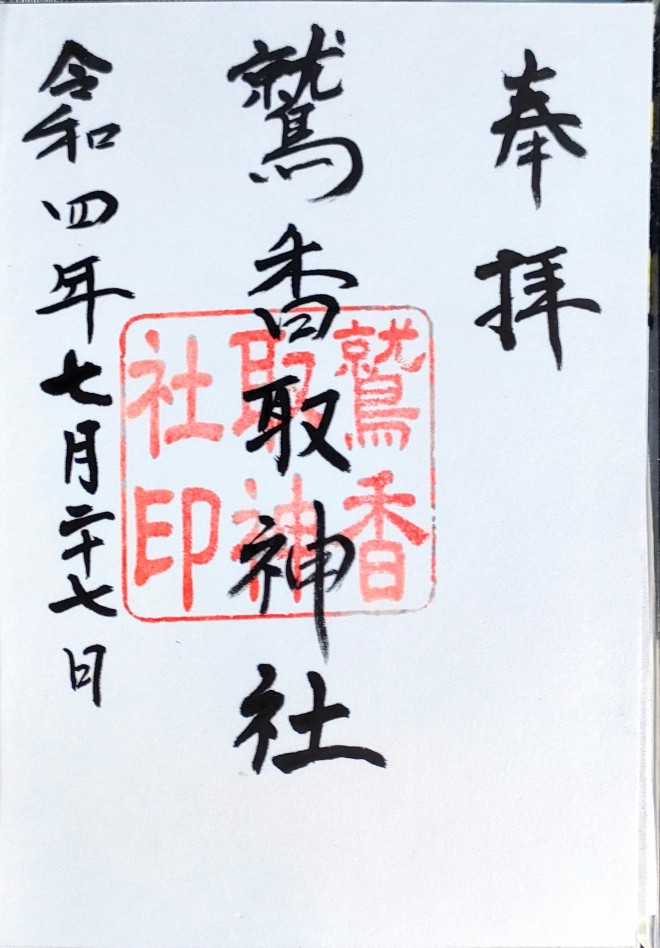 奉拝
鷲香取神社
令和四年七月二十七日
鷲香
取神
社印